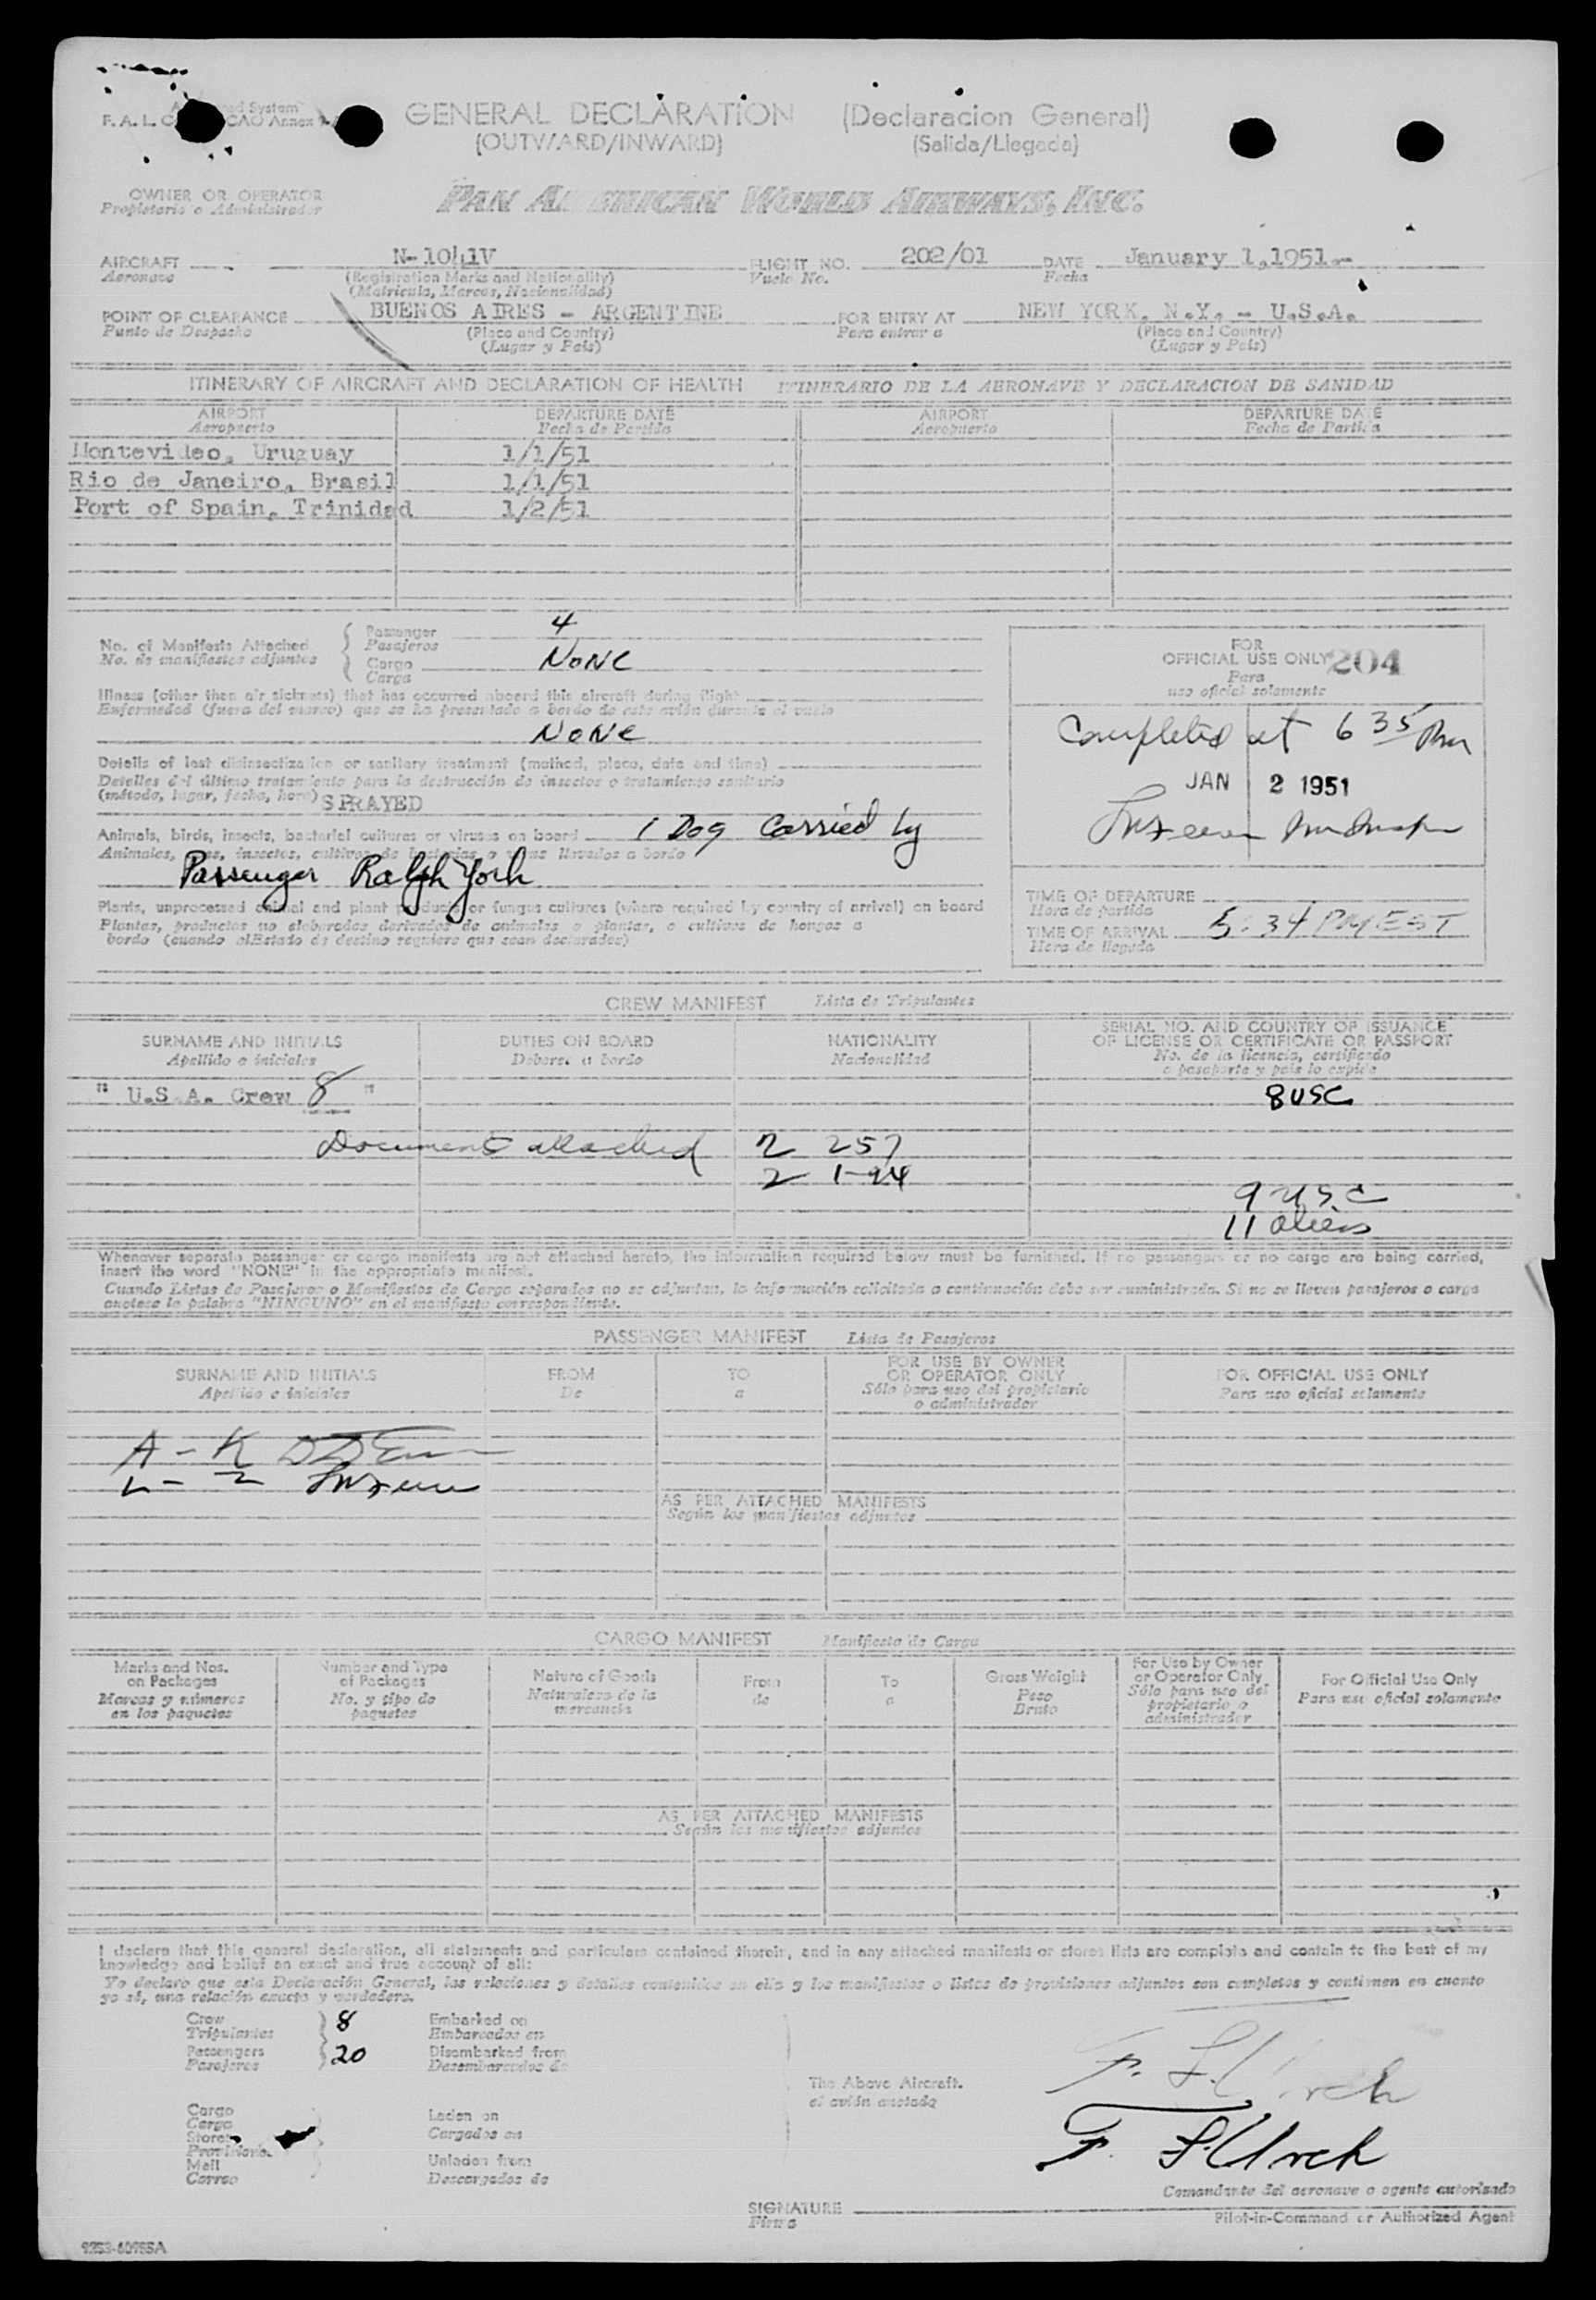 GENERAL DECLARATION (Declaracion General)
(OUTWARD/INWARD) (Salida/Llegada)
F. A. L.
OWNER OR OPERATOR
Propietario o Administrador
PAN AMERICAN WORLD AIRWAYS, INC.
AIRCRAFT N-1041V FLIGHT NO. 202/01 DATE January 1,1951.-
Aeronave (Registration Marks and Nationality) Vuelo No. Fecha
(Matricula, Marcas, Nacionalidad)
POINT OF CLEARANCE BUENOS AIRES - ARGENTINE FOR ENTRY AT NEW YORK, N.Y. - U.S.A.
Punto de Despacho (Place and Country) Para entrar a (Place and Country)
(Lugar y Pais) (Lugar y Pais)
ITINERARY OF AIRCRAFT AND DECLARATION OF HEALTH ITINERARIO DE LA AERONAVE Y DECLARACION DE SANIDAD
AIRPORT DEPARTURE DATE AIRPORT DEPARTURE DATE
Aeropuerto Fecha de Partida Aeropuerto Fecha de Partida
Montevideo, Uruguay 1/1/51
Rio de Janeiro, Brasil 1/1/51
Port of Spain, Trinidad 1/2/51
No. of Manifests Attached Passenger 4
No. de manifiestos adjuntos Pasajeros
Cargo None
Carga
FOR
OFFICIAL USE ONLY 204
Para
uso oficial solamente
Illness (other than air sickness) that has occurred aboard this aircraft during flight
Enfermedad (fuera del mareo) que se ha presentado a bordo de este avión durante el vuelo
None
Completed at 6 35 Pm
JAN 2 1951
Details of last disinsectization or sanitary treatment (method, place, date and time)
Detalles del último tratamiento para la destrucción de insectos o tratamiento sanitario
(método, lugar, fecha, hora) SPRAYED
Animals, birds, insects, bacterial cultures or viruses on board 1 Dog Carried by
Animales, aves, insectos, cultivos de bacterias o virus llevados a bordo
Passenger Ralph York
Plants, unprocessed animal and plant products or fungus cultures (where required by country of arrival) on board
Plantas, productos no elaborados derivados de animales o plantas, o cultivos de hongos a
bordo (cuando el Estado de destino requiera que sean declarados)
TIME OF DEPARTURE
Hora de partida
TIME OF ARRIVAL 5:34 PM EST
Hora de llegada
CREW MANIFEST Lista de Tripulantes
SURNAME AND INITIALS DUTIES ON BOARD NATIONALITY SERIAL NO. AND COUNTRY OF ISSUANCE
OF LICENSE OR CERTIFICATE OR PASSPORT
Apellido e iniciales Deberes a bordo Nacionalidad No. de la licencia, certificado
o pasaporte y pais lo expide
" U.S.A. Crew 8 " 8 USC
Documents attached 2 257
2 1-94
9 USC
11 aliens
Whenever separate passenger or cargo manifests are not attached hereto, the information required below must be furnished. If no passengers or no cargo are being carried,
insert the word "NONE" in the appropriate manifest.
Cuando Listas de Pasajeros o Manifiestos de Carga separados no se adjuntan, la información solicitada a continuación debe ser suministrada. Si no se lleven pasajeros o carga
anotese la palabra "NINGUNO" en el manifiesto correspondiente.
PASSENGER MANIFEST Lista de Pasajeros
SURNAME AND INITIALS FROM TO FOR USE BY OWNER
OR OPERATOR ONLY FOR OFFICIAL USE ONLY
Apellido e iniciales De a Sólo para uso del propietario
o administrador Para uso oficial solamente
A - K
L - Z
AS PER ATTACHED MANIFESTS
Según los manifiestos adjuntos
CARGO MANIFEST Manifiesto de Carga
Marks and Nos.
on Packages
Marcas y números
en los paquetes
Number and Type
of Packages
No. y tipo de
paquetes
Nature of Goods
Naturaleza de la
mercancia
From
de
To
a
Gross Weight
Peso
Bruto
For Use by Owner
or Operator Only
Sólo para uso del
propietario o
administrador
For Official Use Only
Para uso oficial solamente
AS PER ATTACHED MANIFESTS
Según los manifiestos adjuntos
I declare that this general declaration, all statements and particulars contained therein, and in any attached manifests or stores lists are complete and contain to the best of my
knowledge and belief an exact and true account of all:
Yo declaro que esta Declaración General, las relaciones y detalles contenidos en ella y los manifiestos o listas de provisiones adjuntos son completos y contienen en cuanto
yo sé, una relación exacta y verdadera.
Crew 8 Embarked on
Tripulantes Embarcados en
Passengers 20 Disembarked from
Pasajeros Desembarcados de
The Above Aircraft.
el avión anotado
Cargo Laden on
Carga Cargados en
Stores
Provisiones
Mail Unladen from
Correo Descargados de
Comandante del aeronave o agente autorizado
SIGNATURE
Firma
Pilot-in-Command or Authorized Agent